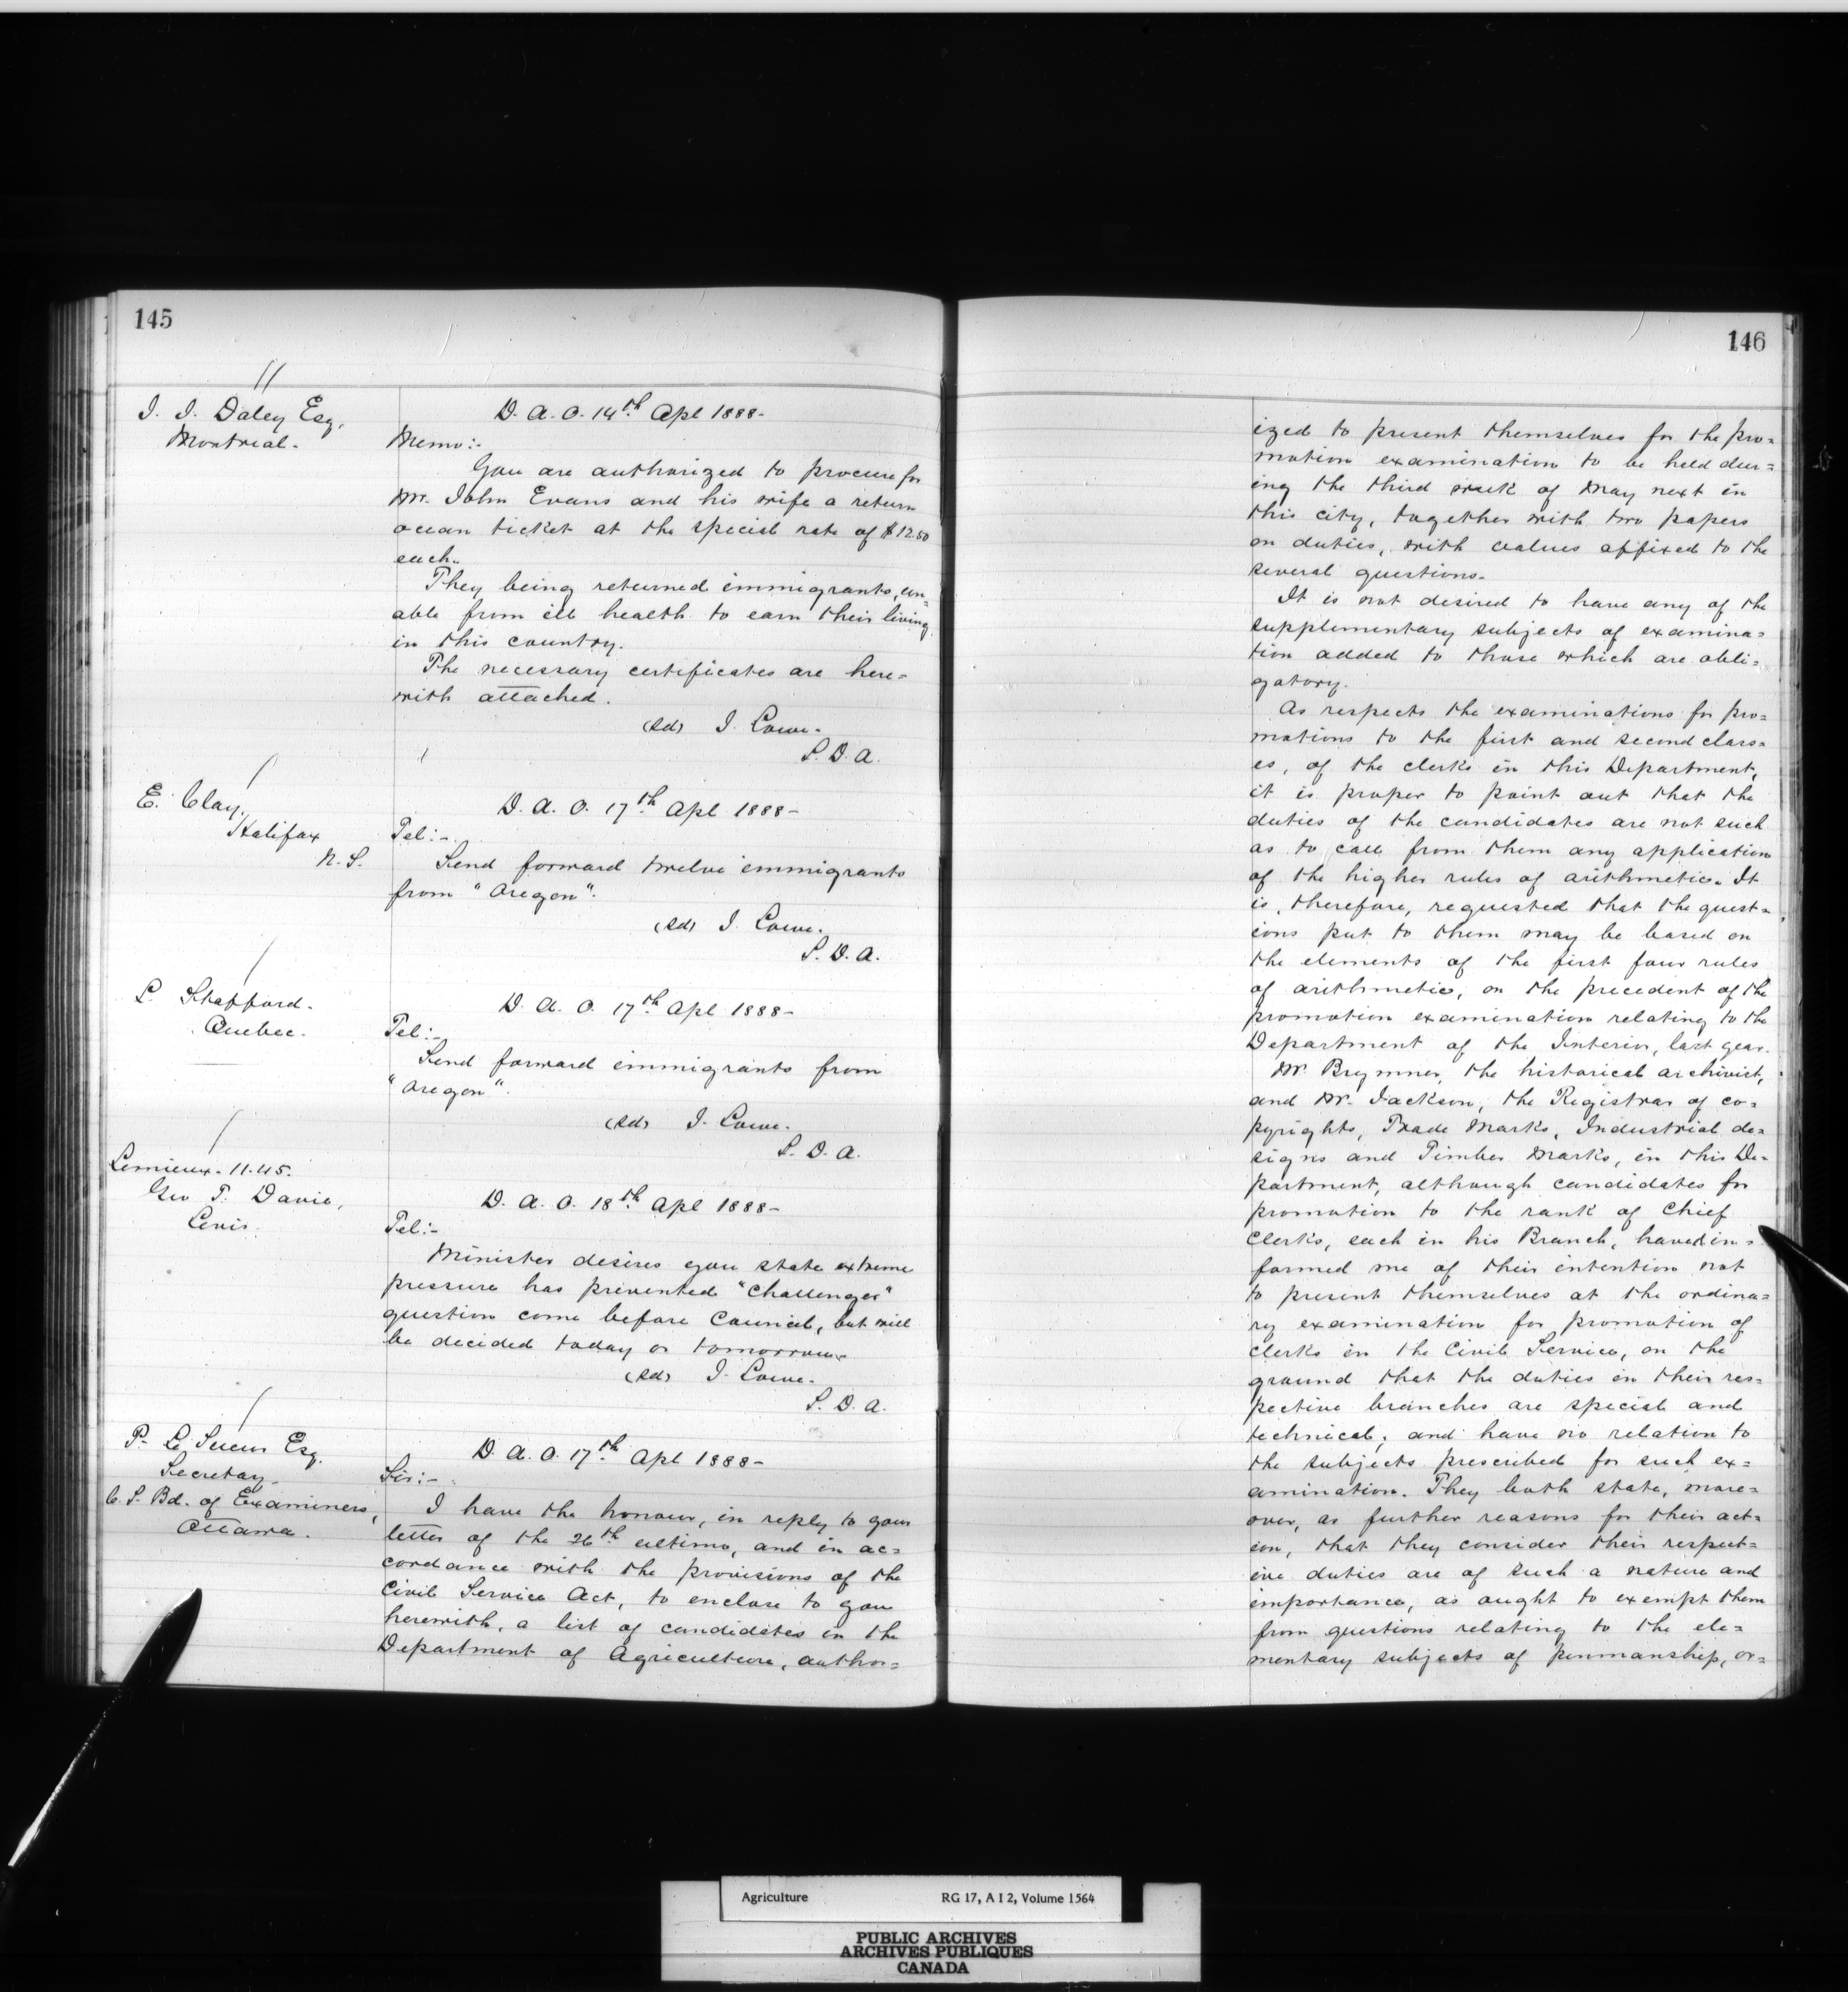 145
J. J. Daley Esq,
Montreal.
D. A. O. 14th Apl 1888-
Memo:-
You are authorized to procure for
Mr. John Evans and his wife a return
ocean ticket at the special rate of $12.50
each.
They being returned immigrants, un=
able from ill health to earn their living
in this country.
The necessary certificates are here=
with attached.
(Sd) J. Lowe.
S. D. A.
E. Clay,
Halifax
N. S.
D. A. O. 17th Apl 1888-
Tel:-
Send forward twelve immigrants
from "Oregon".
(Sd) J. Lowe.
S. D. A.
L. Stafford.
Quebec.
D. A. O. 17th Apl 1888-
Tel:-
Send forward immigrants from
"Oregon".
(Sd) J. Lowe.
S. D. A.
Lemieux. 11.45.
Geo T. Davie,
Levis.
D. A. O. 18th Apl 1888-
Tel:-
Minister desires you state extreme
pressure has prevented "Challenger"
question come before Council, but will
be decided today or tomorrow.
(Sd) J. Lowe.
S. D. A.
P. Le Sueur Esq.
Secretay
C. S. Bd. of Examiners,
Ottawa.
D. A. O. 17th Apl 1888-
Sir:-
I have the honour, in reply to your
letter of the 26th ultimo, and in ac=
cordance with the provisions of the
Civil Service Act, to enclose to you
herewith, a list of candidates in the
Department of Agriculture, author=
146
ized to present themselves for the pro=
motion examination to be held dur=
ing the third week of May next in
this city, together with two papers
on duties, with values affixed to the
several questions.
It is not desired to have any of the
supplementary subjects of examina=
tion added to those which are obli=
gatory.
As respects the examinations for pro=
motions to the first and second class=
es, of the clerks in this Department,
it is proper to point out that the
duties of the candidates are not such
as to call from them any application
of the higher rules of arithmetic. It
is, therefore, requested that the quest=
ions put to them may be based on
the elements of the first four rules
of arithmetic, on the precedent of the
promotion examination relating to the
Department of the Interior, last year.
Mr. Brymner, the historical archivist,
and Mr. Jackson, the Registrar of co=
pyrights, Trade Marks, Industrial de=
signs and Timber Marks, in this De=
partment, although candidates for
promotion to the rank of Chief
Clerks, each in his Branch, have in=
formed me of their intention not
to present themselves at the ordina=
ry examination for promotion of
clerks in the Civil Service, on the
ground that the duties in their res=
pective branches are special and
technical; and have no relation to
the subjects prescribed for such ex=
amination. They both state, more=
over, as further reasons for their act=
ion, that they consider their respect=
ive duties are of such a nature and
importance, as ought to exempt them
from questions relating to the ele=
mentary subjects of penmanship, or=
Agriculture RG 17, A I 2, Volume 1564
PUBLIC ARCHIVES
ARCHIVES PUBLIQUES
CANADA